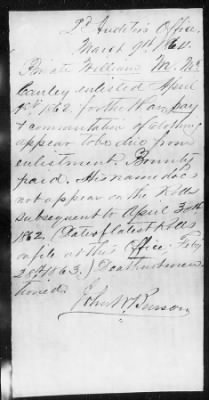 2d Auditor's Office,
March 9th 1864.
Private William Wr. Mc
Cauley enlisted April
15th 1862. for the War, pay
& commutation of clothing
appear to be due from
enlistment. Bounty
paid. His name does
not appear on the Rolls
subsequent to April 30th
1862. (Date of latest Rolls
on file at this Office, Feby
28th 1863.) Death not men
tioned.
John W.